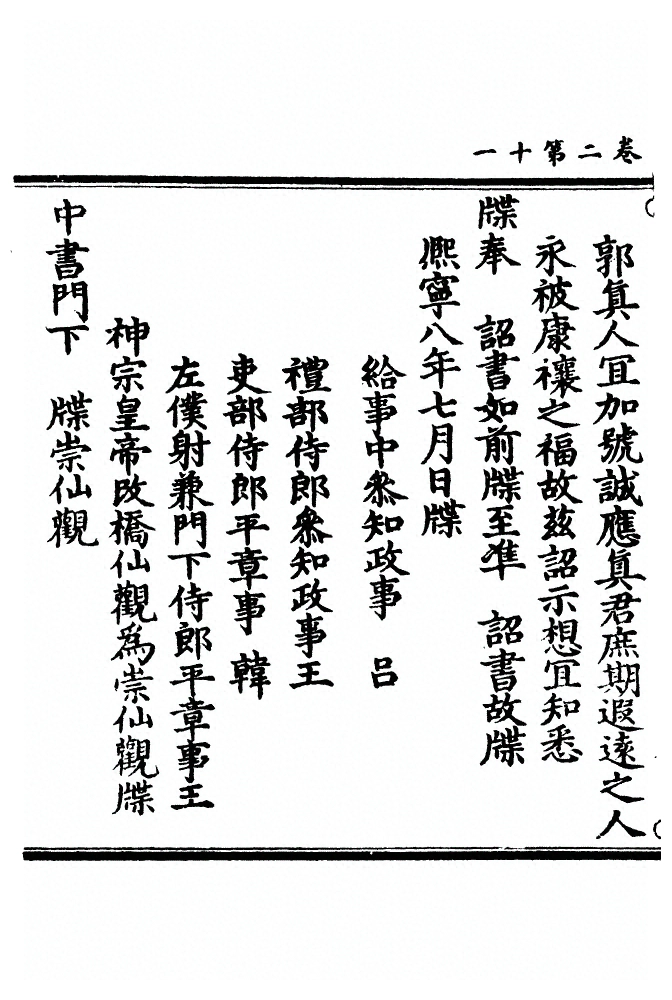 卷二第十一
郭眞人冝加號誠應眞君庶期遐逺之人
永被康禳之福故玆詔示想冝知悉
牒奉　詔書如前牒至准　詔書故牒
熈寧八年七月日牒
給事中叅知政事　呂
禮部侍郎叅知政事王
吏部侍郎平章事　韓
左僕射兼門下侍郎平章事王
神宗皇帝改橋仙觀為崇仙觀牒
中書門下　牒崇仙觀